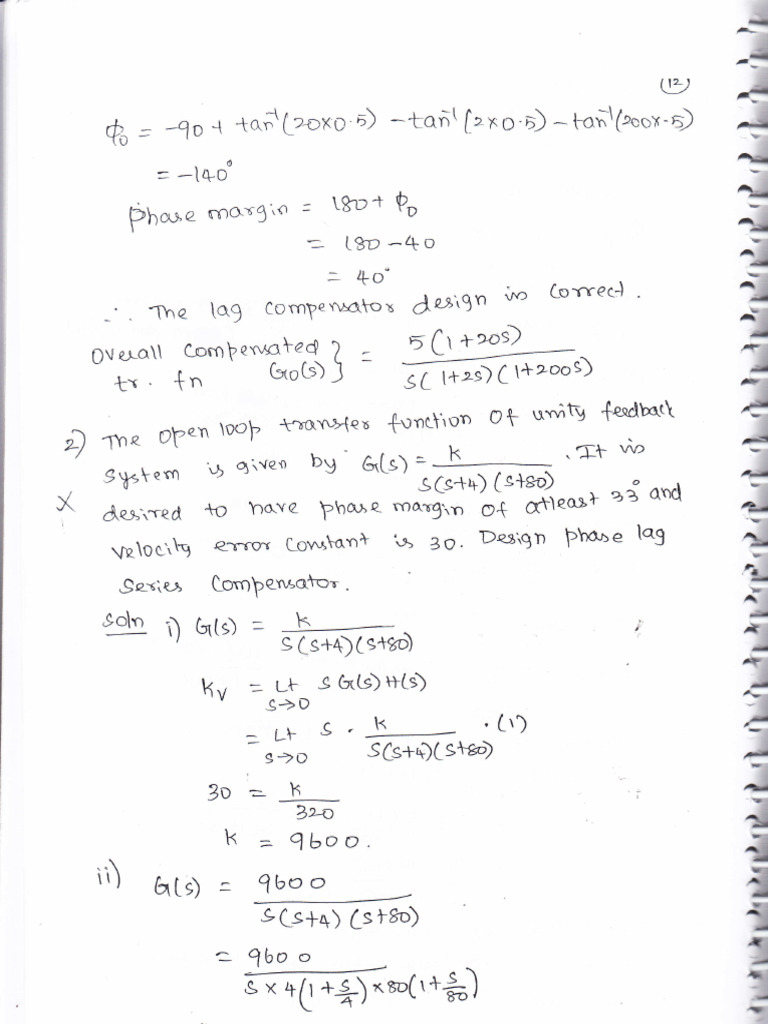 (12)
ϕ₀ = -90 + tan⁻¹(20×0.5) - tan⁻¹(2×0.5) - tan⁻¹(200×.5)
= -140°
Phase margin = 180 + ϕ₀
= 180 - 40
= 40°
∴ The lag compensator design is correct.
Overall compensated tr. fn G₀(s) } = 5(1+20s) / s(1+2s)(1+200s)
2) The open loop transfer function of unity feedback
system is given by G(s) = k / s(s+4)(s+80) . It is
X desired to have phase margin of atleast 33° and
velocity error constant is 30. Design phase lag
series compensator.
Soln i) G(s) = k / s(s+4)(s+80)
kv = Lt s→0 s G(s) H(s)
= Lt s→0 s . k / s(s+4)(s+80) . (1)
30 = k / 320
k = 9600.
ii) G(s) = 9600 / s(s+4)(s+80)
= 9600 / s×4(1+s/4)×80(1+s/80)